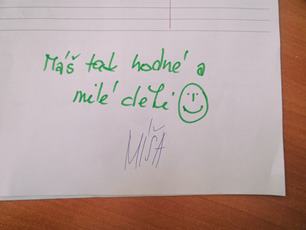 Máš tak hodné a
milé děti
MÍŠA